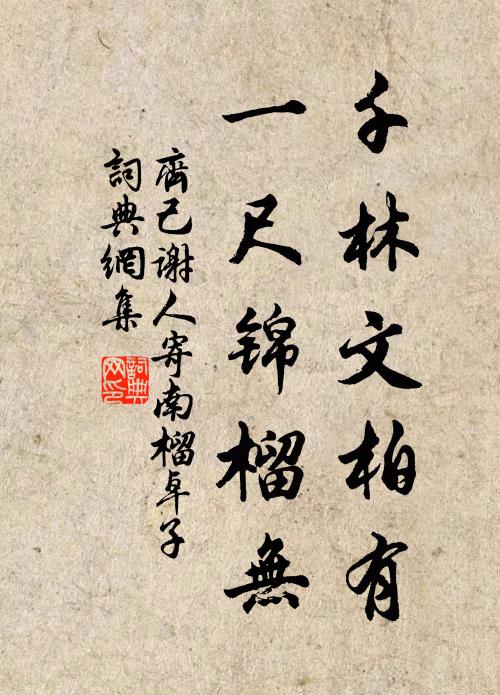 千林文柏有
一尺锦榴無
齊己谢人寄南榴卓子
詞典網集
詞典
网印